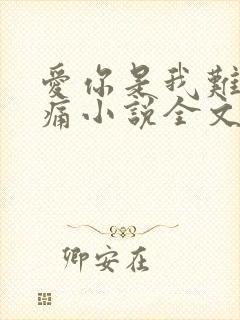 愛你是我難
痛小說全文
卿安在